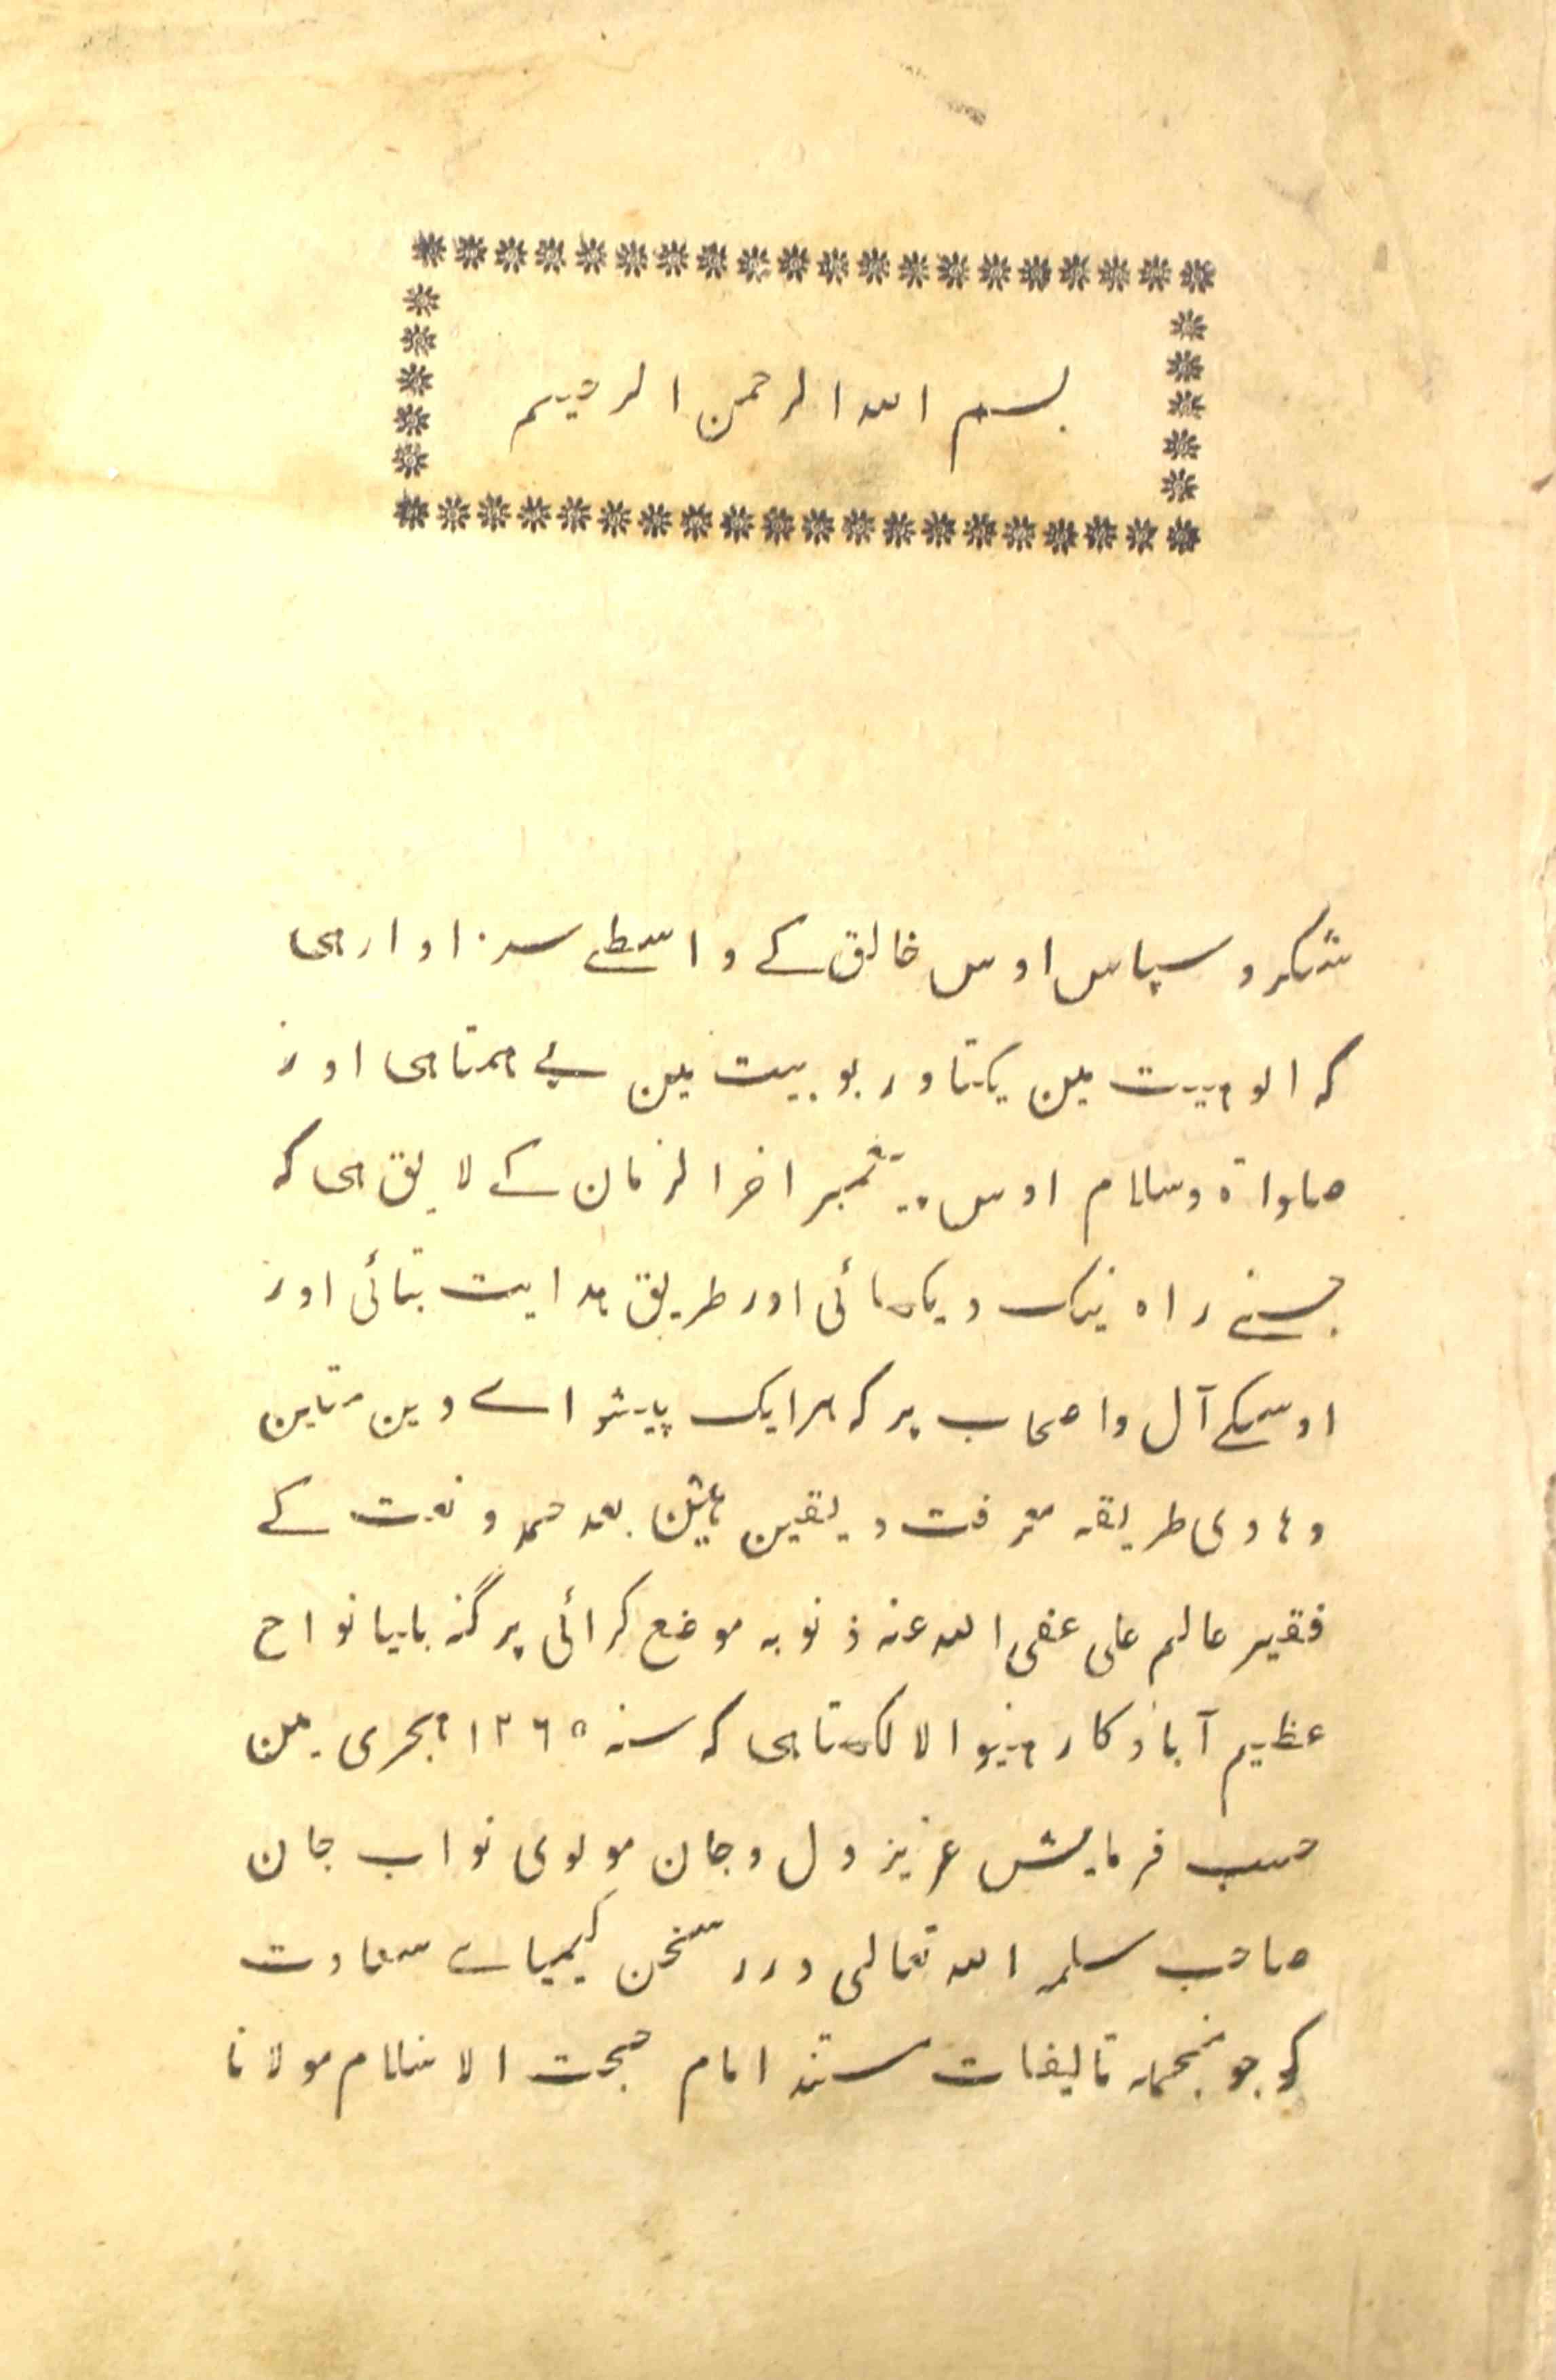 بسم الله الرحمن الرحیم
شکر و سپاس اوس خالق کے واسطے سزاوار ہی
کہ الوہیت مین یکتا و ربوبیت مین بے ہمتا ہی اور
صلواة وسلام اوس پیغمبر اخرالزمان کے لایق ہی کہ
جسنے راہ نیک دیکھائی اور طریق ہدایت بتائی اور
اوسکے آل واصحاب پر کہ ہر ایک پیشواے دین متین
وہادی طریقہ معرفت و یقین ہین بعد حمد و نعت کے
فقیر عالم علی عفی الله عنہ ذنوبہ موضع کرائی پرگنہ بلیا نواح
عظیم آباد کا رہنیوالا لکھتا ہی کہ سنہ ۱۲۶۵ ہجری مین
حسب فرمایش عزیز دل وجان مولوی نواب جان
صاحب سلمہ الله تعالی درر سخن کیمیاے سعادت
کو جو منجملہ تالیفات مستند امام حجت الاسلام مولانا